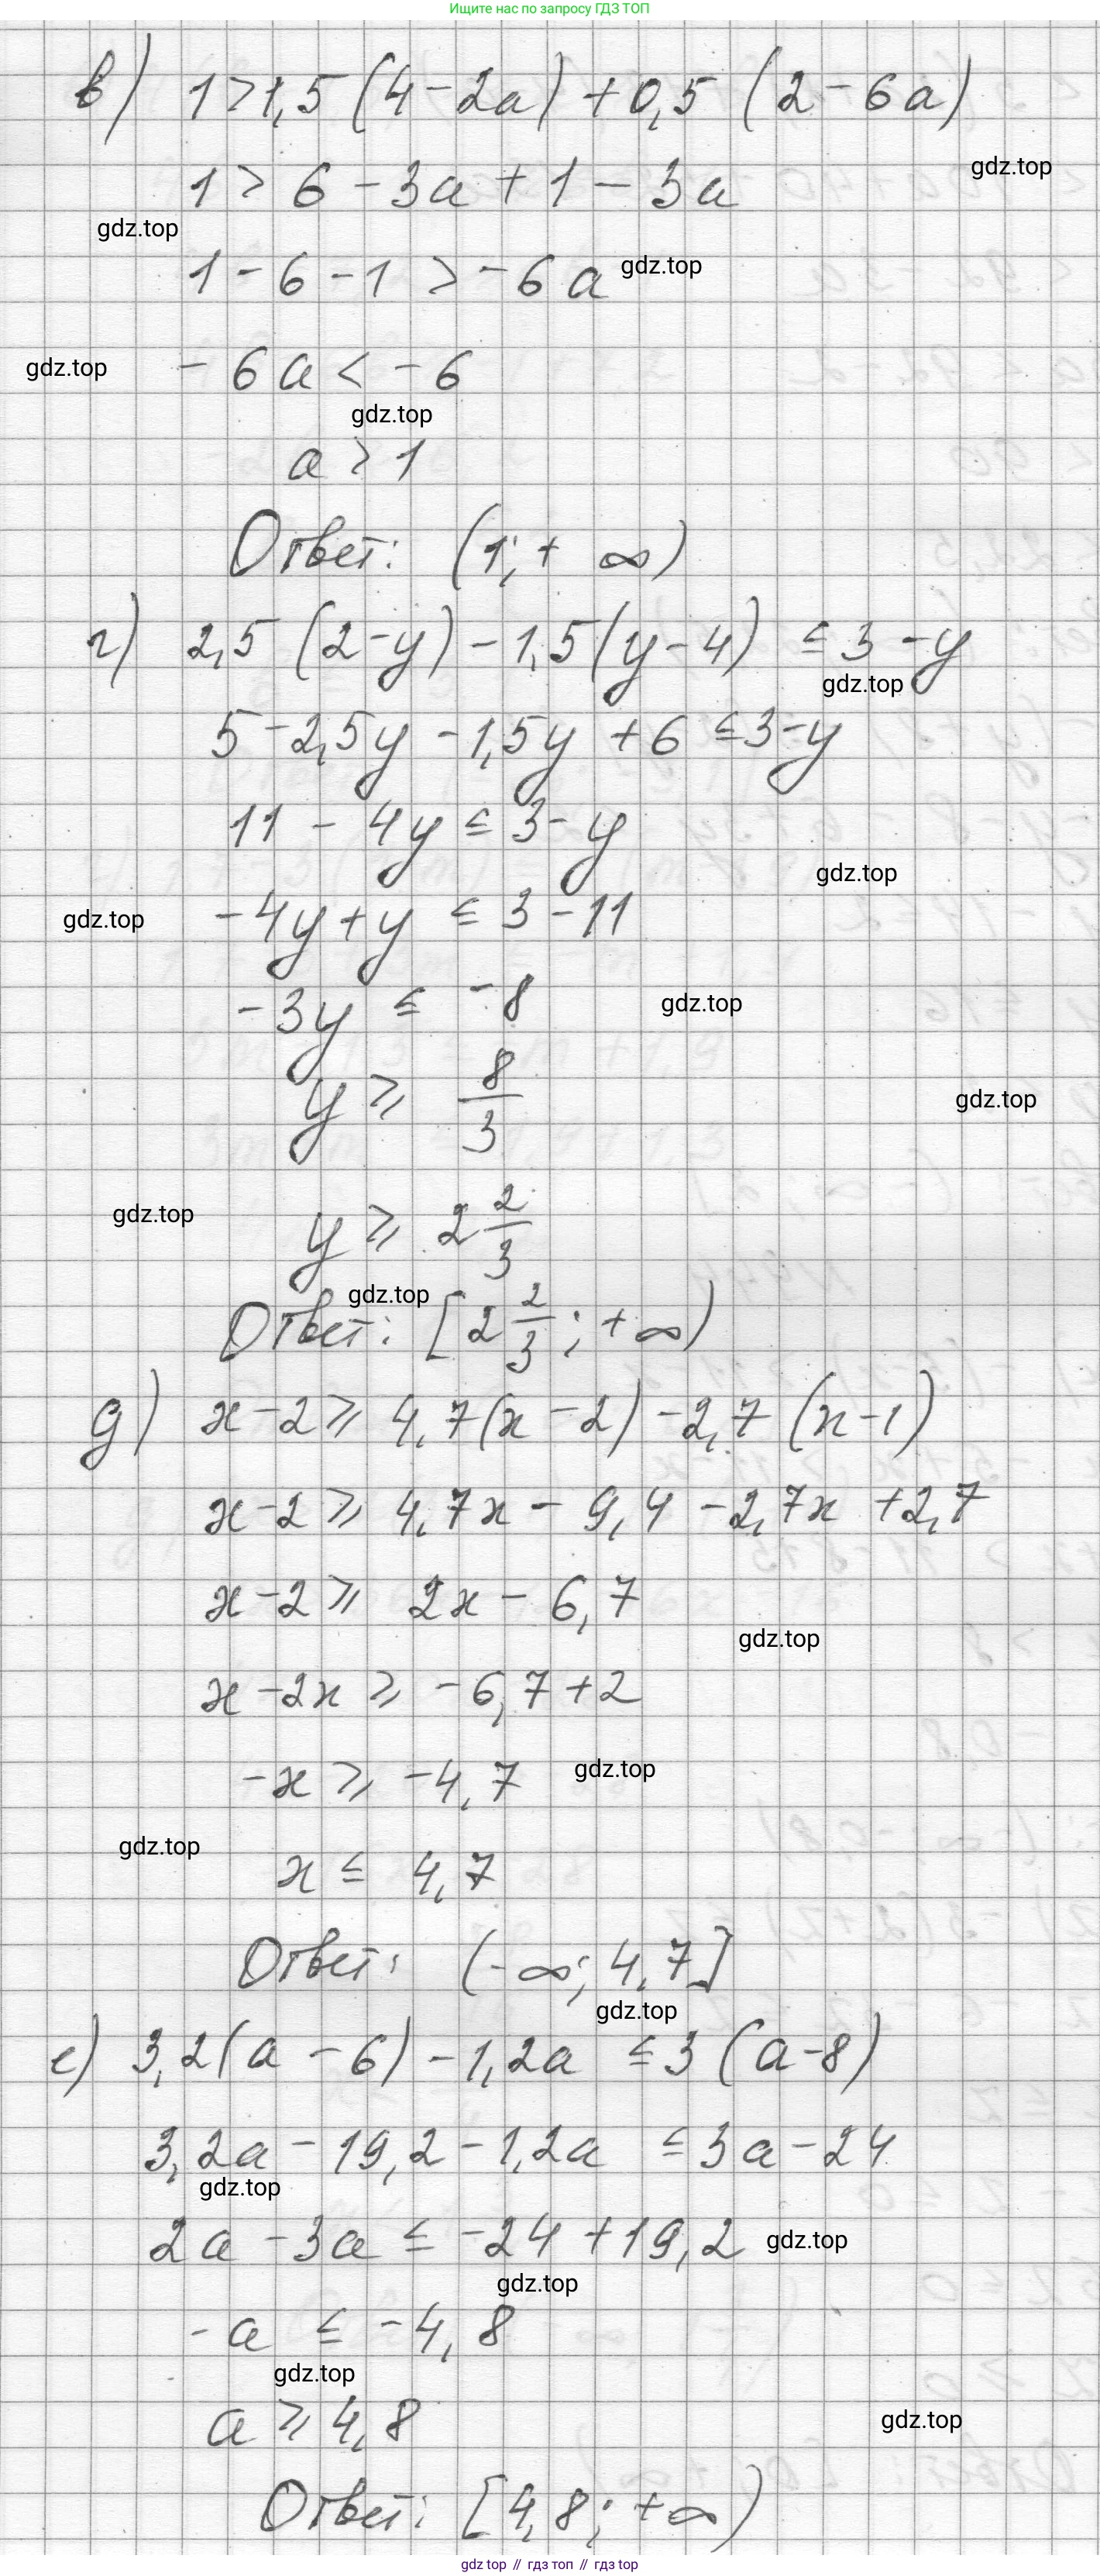 Ищите нас по запросу ГДЗ ТОП
в) 1 > 1,5 (4 - 2a) + 0,5 (2 - 6a)
gdz.top
1 > 6 - 3a + 1 - 3a
gdz.top
1 - 6 - 1 > -6a gdz.top
gdz.top -6a < -6
gdz.top
a > 1
Ответ: (1; + ∞)
г) 2,5 (2 - y) - 1,5 (y - 4) ≤ 3 - y
gdz.top
5 - 2,5y - 1,5y + 6 ≤ 3 - y
11 - 4y ≤ 3 - y
gdz.top
gdz.top -4y + y ≤ 3 - 11
-3y ≤ -8 gdz.top
y ≥ 8/3 gdz.top
gdz.top y ≥ 2 2/3
gdz.top
Ответ: [2 2/3; +∞)
д) x - 2 ≥ 4,7 (x - 2) - 2,7 (x - 1)
x - 2 ≥ 4,7x - 9,4 - 2,7x + 2,7
x - 2 ≥ 2x - 6,7
gdz.top
x - 2x ≥ -6,7 + 2
-x ≥ -4,7 gdz.top
gdz.top
x ≤ 4,7
Ответ: (-∞; 4,7]
gdz.top
е) 3,2 (a - 6) - 1,2a ≤ 3 (a - 8)
3,2a - 19,2 - 1,2a ≤ 3a - 24
gdz.top
2a - 3a ≤ -24 + 19,2 gdz.top
gdz.top
-a ≤ -4,8
gdz.top
a ≥ 4,8 gdz.top
Ответ: [4,8; +∞)
gdz top // гдз топ // гдз top